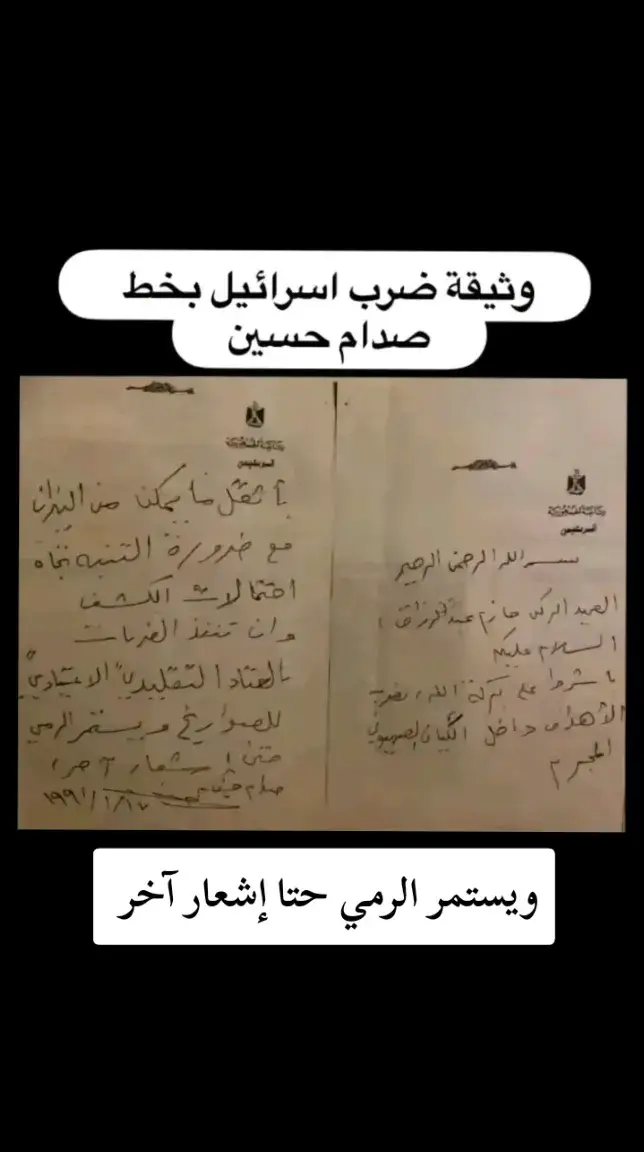 وثيقة ضرب اسرائيل بخط
صدام حسين
رئاسة الجمهورية
السرتير
بسم الله الرحمن الرحيم
العميد الركن حازم عبدالرزاق ،
السلام عليكم
باشروا على بركة الله ، بضرب
الأهداف داخل الكيان الصهيوني
المجرم
رئاسة الجمهورية
بأثقل ما يمكن من النيران
مع ضرورة التنبه تجاه
احتمالات الكشف
وان تنفذ الضربات
بالعتاد التقليدي "الاعتيادي"
للصواريخ ويستمر الرمي
حتى إشعار آخر ،
صدام حسين
١٩٩١/١/١٧
ويستمر الرمي حتا إشعار آخر